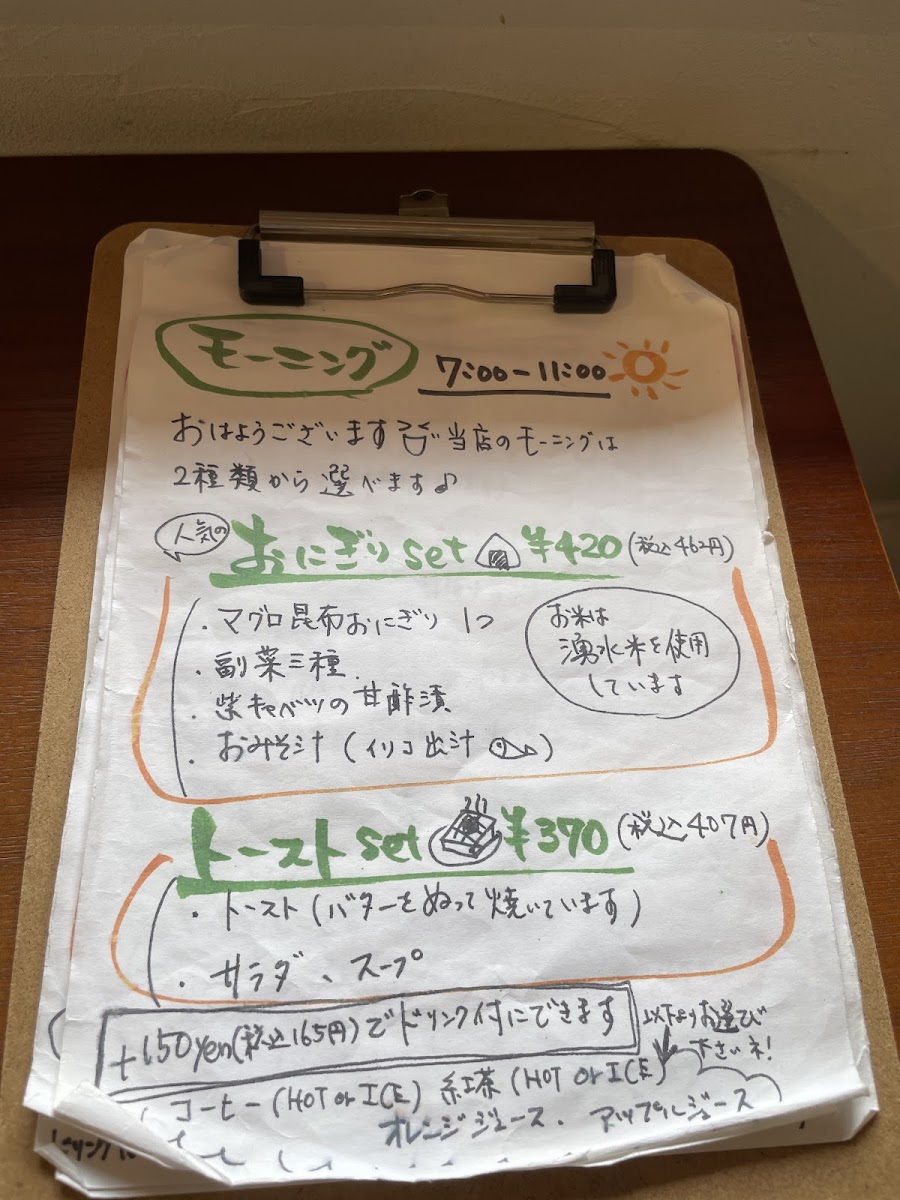 モーニング 7:00-11:00
おはようございます 当店のモーニングは
2種類から選べます♪
人気の おにぎり set ¥420 (税込462円)
・マグロ昆布おにぎり 1つ
・副菜三種
・紫キャベツの甘酢漬
・おみそ汁 (イリコ出汁)
お米は
湧水米を使用
しています
トースト set ¥370 (税込407円)
・トースト (バターをぬって焼いています)
・サラダ、スープ
+150yen(税込165円)でドリンク付にできます
以下よりお選び
下さいネ!
コーヒー (HOT or ICE) 紅茶 (HOT or ICE)
オレンジジュース、アップルジュース